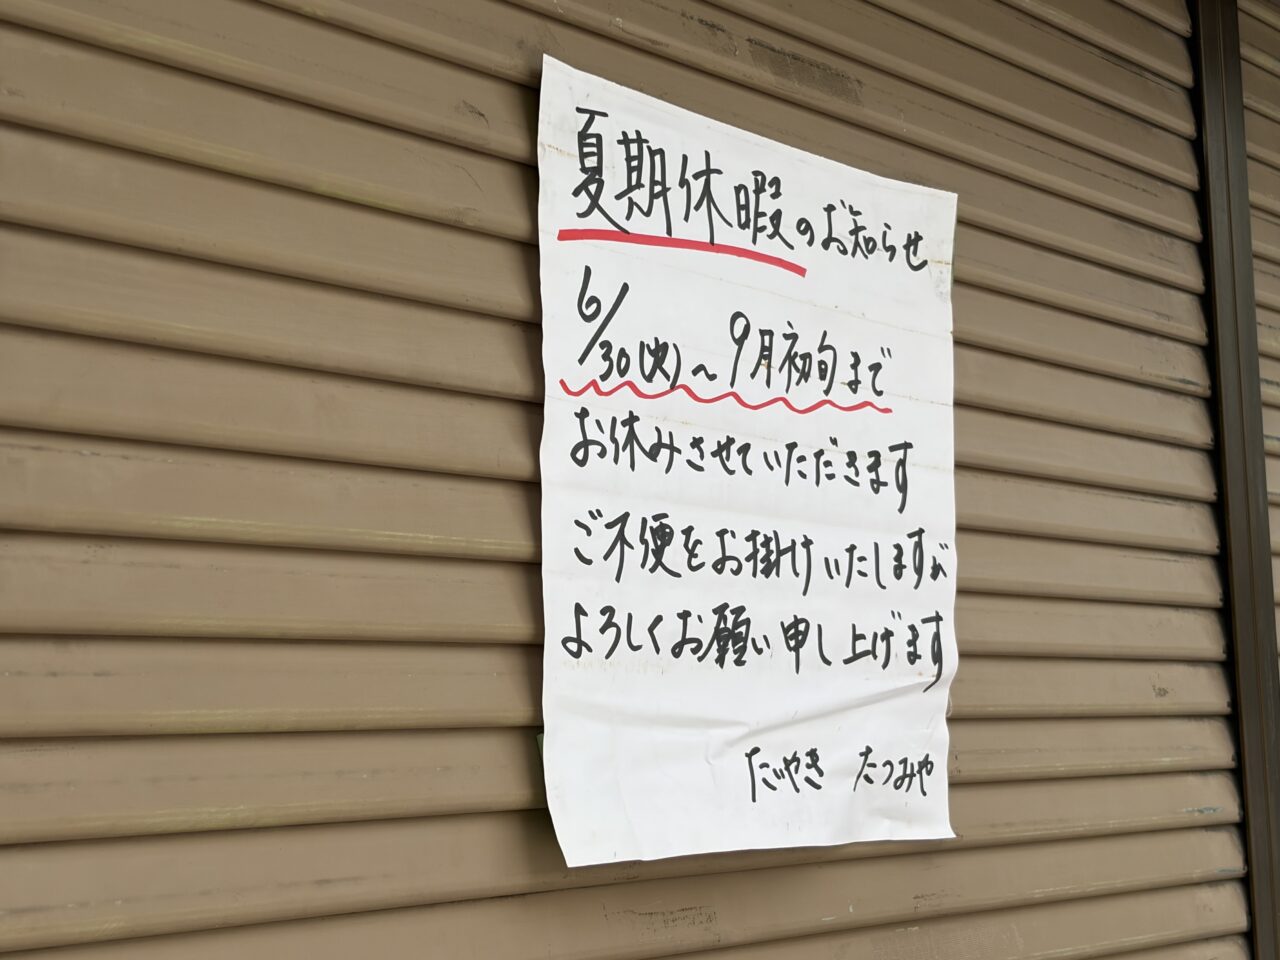 夏期休暇のお知らせ
6/30(火)～9月初旬まで
お休みさせていただきます
ご不便をお掛けいたしますが
よろしくお願い申し上げます
たいやき たつみや